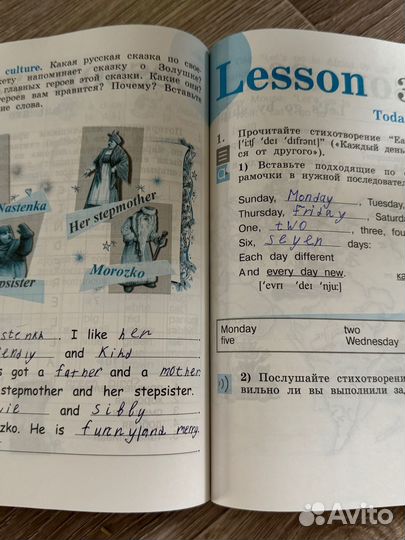 culture. Какая русская сказка по свое-
жету напоминает сказку о Золушке?
главных героев этой сказки. Какие они?
героев вам нравится? Почему? Вставьте
ие слова.
Nastenka
Her stepmother
Morozko
psister
stenka. I like her
endly and kind
s got a father and a mother.
stepmother and her stepsister.
and silly
zko. He is funny and merry.
Lesson 3
Toda
1. Прочитайте стихотворение “Ea
['i:tʃ 'deɪ 'dɪfrənt]” («Каждый день
ся от другого»).
1) Вставьте подходящие по с
рамочки в нужной последовател
Sunday, Monday, Tuesday,
Thursday, Friday, Saturda
One, two, three, four
Six, seven days:
Each day different
And every day new.
['evrɪ 'deɪ 'nju:]
ка
Monday two
five Wednesday
2) Послушайте стихотворени
вильно ли вы выполнили зад
Avito